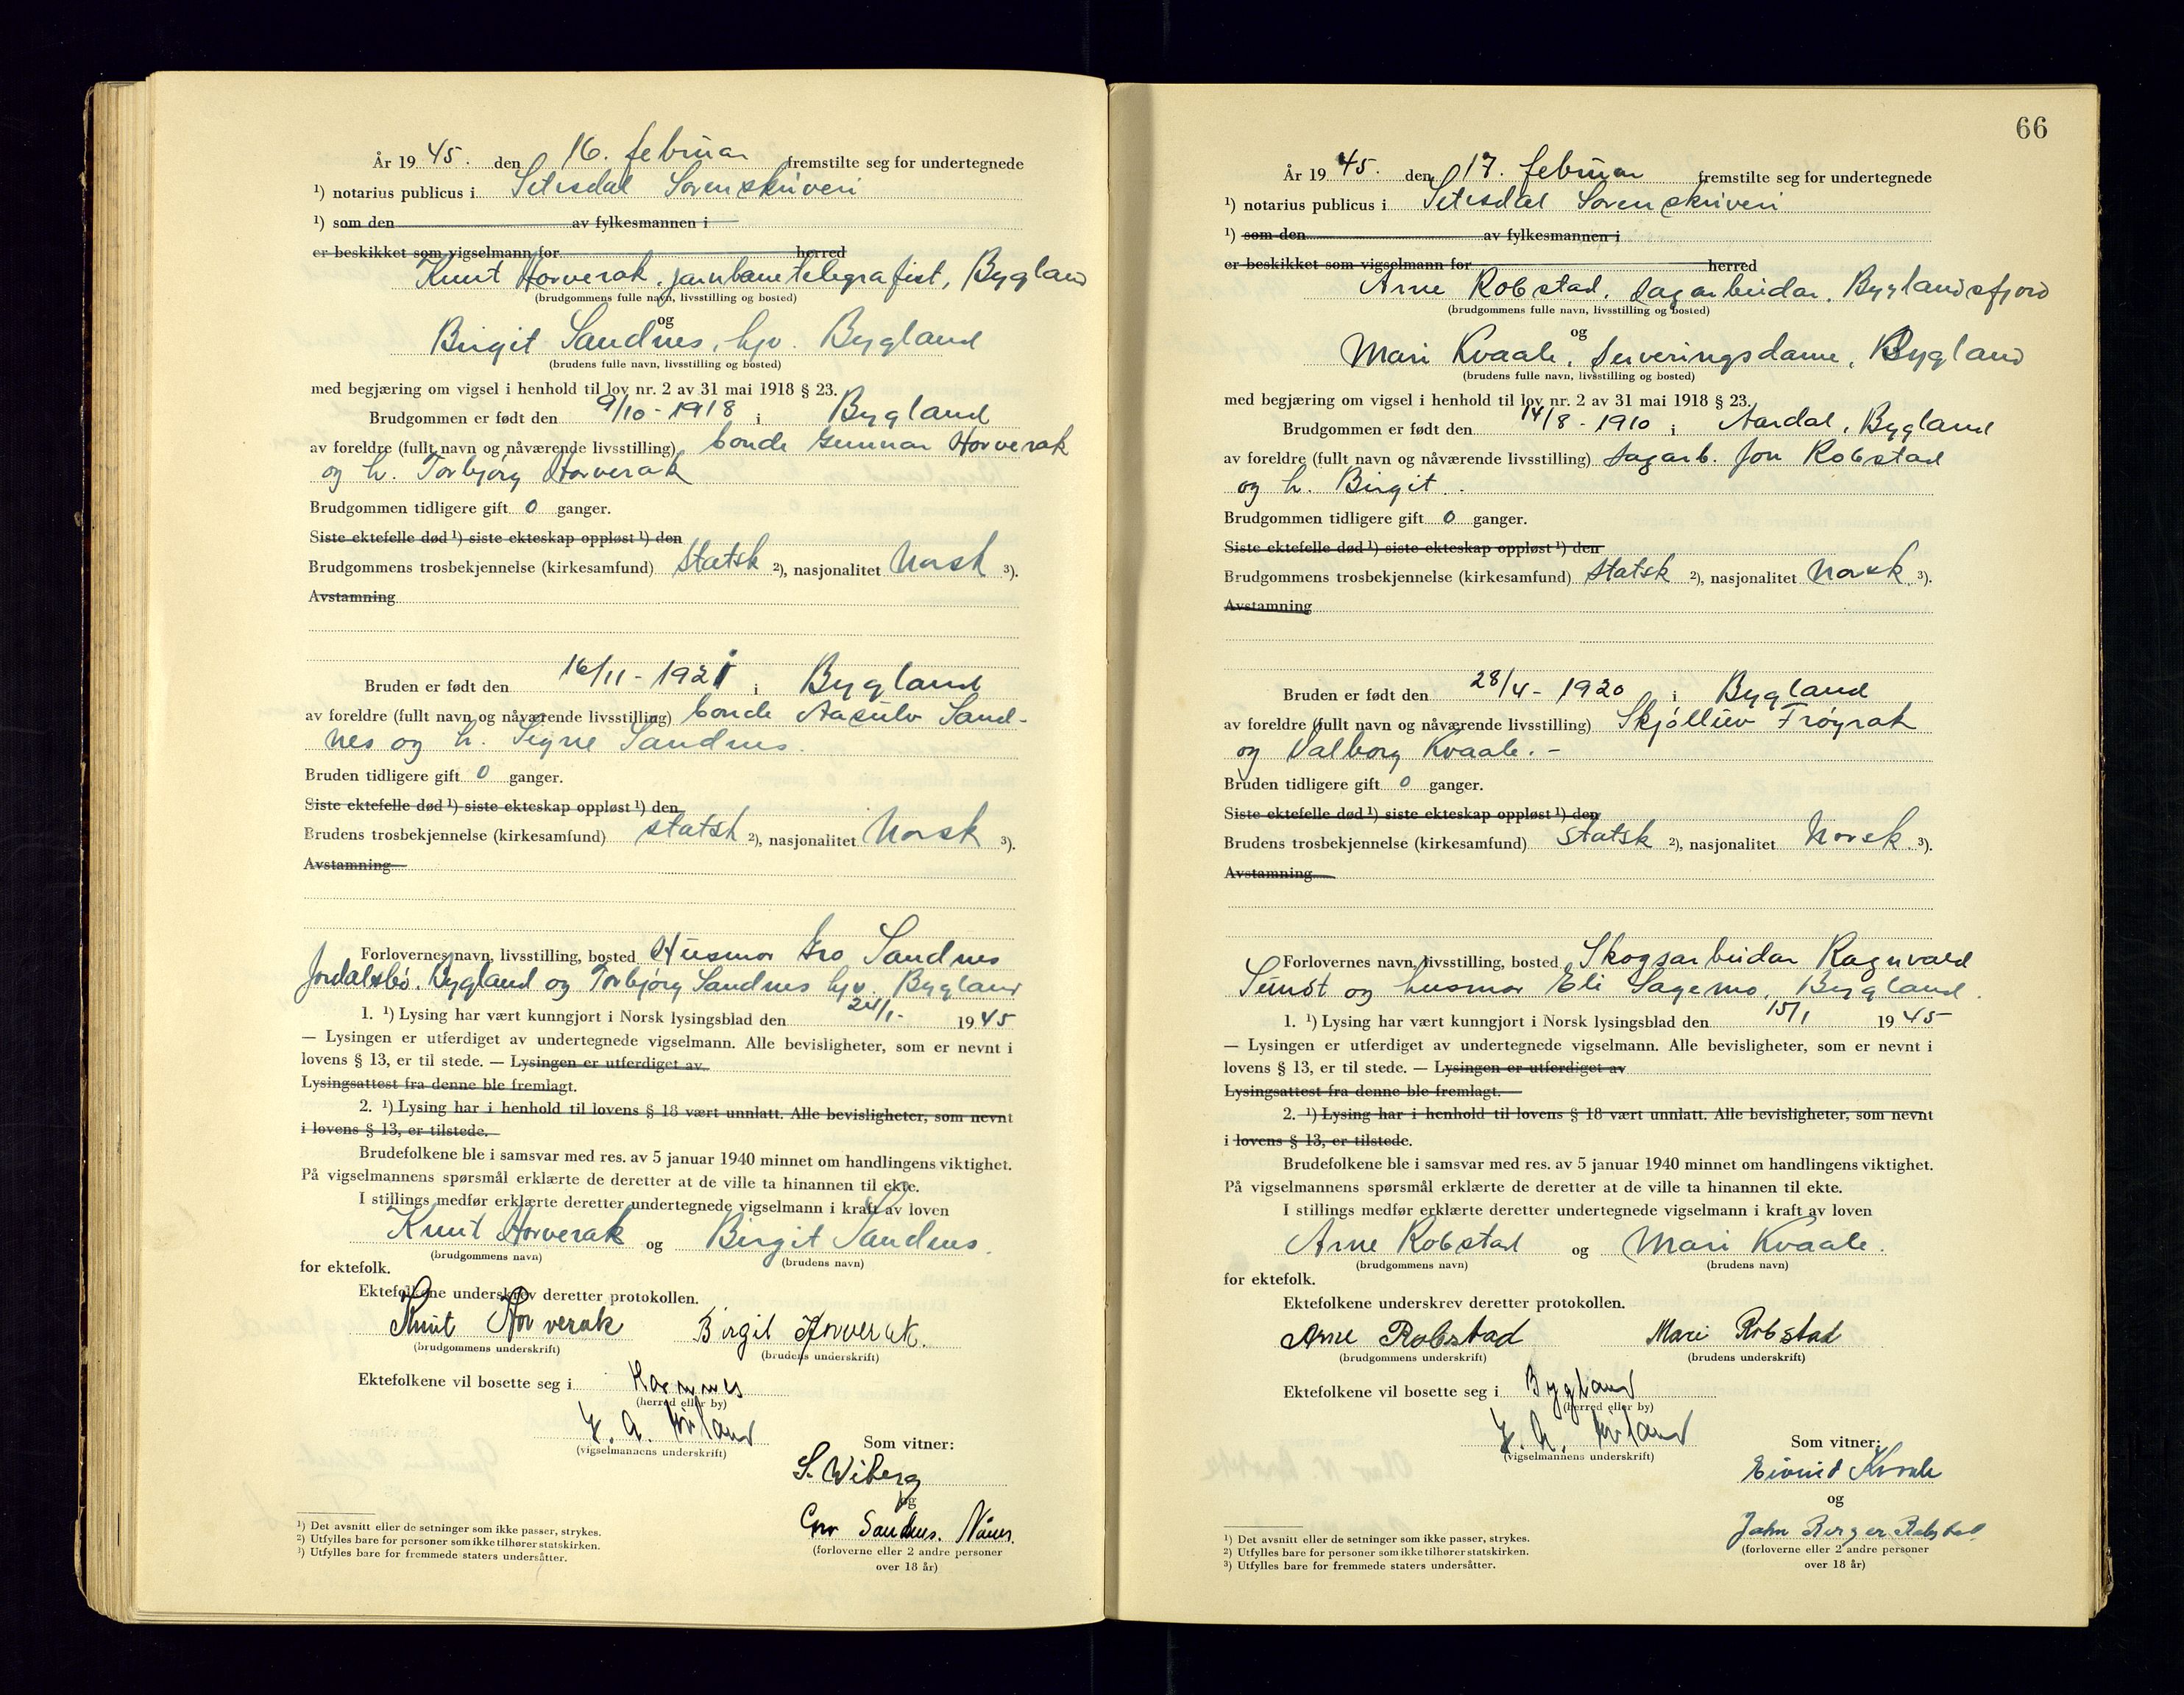 År 1945. den 16. februar fremstilte seg for undertegnede
¹) notarius publicus i Setesdal Sorenskriveri
¹) som den av fylkesmannen i
er beskikket som vigselmann for herred
Knut Horverak, jarnbanetelegrafist, Bygland
(brudgommens fulle navn, livsstilling og bosted)
og
Birgit Sandnes, hjv. Bygland
(brudens fulle navn, livsstilling og bosted)
med begjæring om vigsel i henhold til lov nr. 2 av 31 mai 1918 § 23.
Brudgommen er født den 9/10-1918 i Bygland
av foreldre (fullt navn og nåværende livsstilling) bonde Gunnar Horverak
og h. Torbjørg Horverak
Brudgommen tidligere gift 0 ganger.
Siste ektefelle død ¹) siste ekteskap oppløst ¹) den
Brudgommens trosbekjennelse (kirkesamfund) statsk ²), nasjonalitet Norsk ³).
Avstamning
Bruden er født den 16/11-1921 i Bygland
av foreldre (fullt navn og nåværende livsstilling) bonde Aasulv Sand-
nes og h. Signe Sandnes.
Bruden tidligere gift 0 ganger.
Siste ektefelle død ¹) siste ekteskap oppløst ¹) den
Brudens trosbekjennelse (kirkesamfund) statsk ²), nasjonalitet Norsk ³).
Avstamning
Forlovernes navn, livsstilling, bosted Husmor Gro Sandnes
Jordalsbø, Bygland og Torbjørg Sandnes hjv. Bygland
1. ¹) Lysing har vært kunngjort i Norsk lysingsblad den 24/1- 1945
— Lysingen er utferdiget av undertegnede vigselmann. Alle bevisligheter, som er nevnt i
lovens § 13, er til stede. — Lysingen er utferdiget av
Lysingsattest fra denne ble fremlagt.
2. ¹) Lysing har i henhold til lovens § 18 vært unnlatt. Alle bevisligheter, som nevnt
i lovens § 13, er tilstede.
Brudefolkene ble i samsvar med res. av 5 januar 1940 minnet om handlingens viktighet.
På vigselmannens spørsmål erklærte de deretter at de ville ta hinannen til ekte.
I stillings medfør erklærte deretter undertegnede vigselmann i kraft av loven
Knut Horverak og Birgit Sandnes.
(brudgommens navn) (brudens navn)
for ektefolk.
Ektefolkene underskrev deretter protokollen.
Knut Horverak Birgit Horverak.
(brudgommens underskrift) (brudens underskrift)
Ektefolkene vil bosette seg i Hornnes
(herred eller by)
(vigselmannens underskrift)
Som vitner:
S. Wiberg
og
Gro Sandnes.
(forloverne eller 2 andre personer
over 18 år)
¹) Det avsnitt eller de setninger som ikke passer, strykes.
²) Utfylles bare for personer som ikke tilhører statskirken.
³) Utfylles bare for fremmede staters undersåtter.
66
År 1945. den 17. februar fremstilte seg for undertegnede
¹) notarius publicus i Setesdal Sorenskriveri
¹) som den av fylkesmannen i
er beskikket som vigselmann for herred
Arne Robstad, sagarbeidar, Byglandsfjord
(brudgommens fulle navn, livsstilling og bosted)
og
Mari Kvaale, serveringsdame, Bygland
(brudens fulle navn, livsstilling og bosted)
med begjæring om vigsel i henhold til lov nr. 2 av 31 mai 1918 § 23.
Brudgommen er født den 14/8-1910 i Aardal, Bygland
av foreldre (fullt navn og nåværende livsstilling) sagarb. Jon Robstad
og h. Birgit.
Brudgommen tidligere gift 0 ganger.
Siste ektefelle død ¹) siste ekteskap oppløst ¹) den
Brudgommens trosbekjennelse (kirkesamfund) statsk ²), nasjonalitet Norsk ³).
Avstamning
Bruden er født den 28/4-1920 i Bygland
av foreldre (fullt navn og nåværende livsstilling) Skjølluv Frøyrak
og Valborg Kvaale.-
Bruden tidligere gift 0 ganger.
Siste ektefelle død ¹) siste ekteskap oppløst ¹) den
Brudens trosbekjennelse (kirkesamfund) statsk ²), nasjonalitet Norsk. ³).
Avstamning
Forlovernes navn, livsstilling, bosted Skogsarbeidar Ragnvald
Sundt og husmor Eli Sagemo, Bygland.
1. ¹) Lysing har vært kunngjort i Norsk lysingsblad den 15/1 1945
— Lysingen er utferdiget av undertegnede vigselmann. Alle bevisligheter, som er nevnt i
lovens § 13, er til stede. — Lysingen er utferdiget av
Lysingsattest fra denne ble fremlagt.
2. ¹) Lysing har i henhold til lovens § 18 vært unnlatt. Alle bevisligheter, som nevnt
i lovens § 13, er tilstede.
Brudefolkene ble i samsvar med res. av 5 januar 1940 minnet om handlingens viktighet.
På vigselmannens spørsmål erklærte de deretter at de ville ta hinannen til ekte.
I stillings medfør erklærte deretter undertegnede vigselmann i kraft av loven
Arne Robstad og Mari Kvaale.
(brudgommens navn) (brudens navn)
for ektefolk.
Ektefolkene underskrev deretter protokollen.
Arne Robstad Mari Robstad
(brudgommens underskrift) (brudens underskrift)
Ektefolkene vil bosette seg i Bygland
(herred eller by)
(vigselmannens underskrift)
Som vitner:
Eivind Kvaale
og
John Birger Robstad
(forloverne eller 2 andre personer
over 18 år)
¹) Det avsnitt eller de setninger som ikke passer, strykes.
²) Utfylles bare for personer som ikke tilhører statskirken.
³) Utfylles bare for fremmede staters undersåtter.